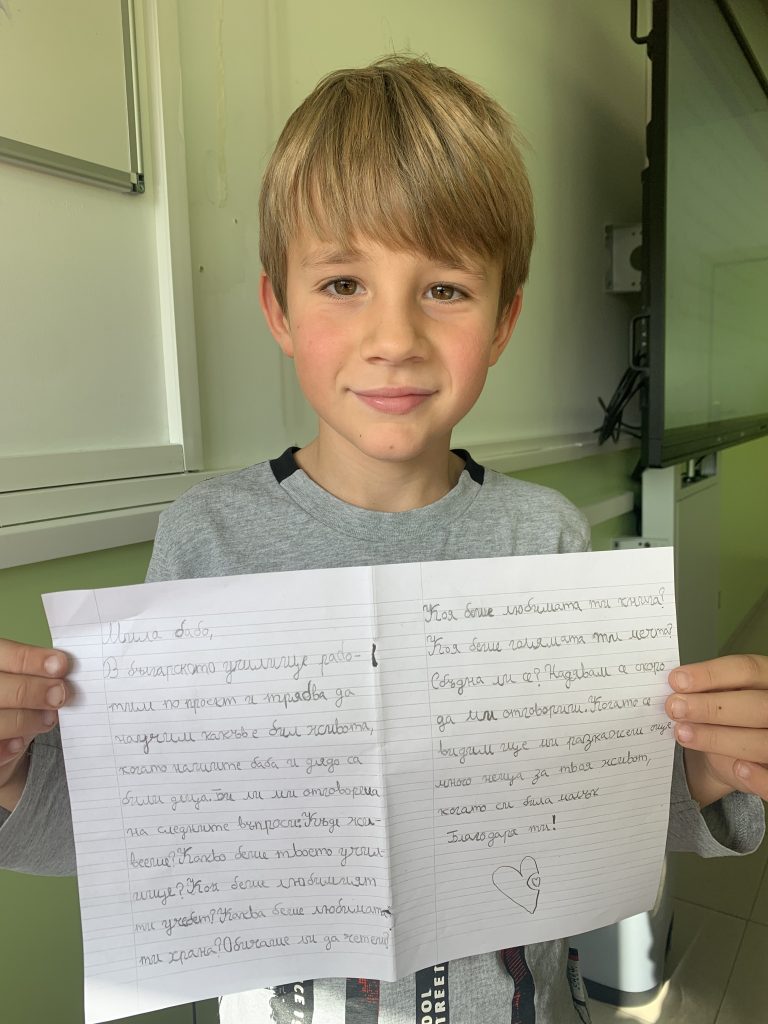 Мила бабо,
В българското училище рабо-
тим по проект и трябва да
научим какъв е бил живота,
когато нашите баба и дядо са
били деца. Би ли ми отговорила
на следните въпроси: Къде жи-
вееше? Какво беше твоето учил-
ище? Кой беше любимият
ти учебет? Каква беше любимата
ти храна? Обичаше ли да четеш?
Коя беше любимата ти книга?
Коя беше голямата ти мечта?
Сбъдна ли се? Надявам се скоро
да ми отговориш. Когато се
видим ще ми разкажеш още
много неща за твоя живот,
когато си била малък
Благодаря ти!
OOL
TREET